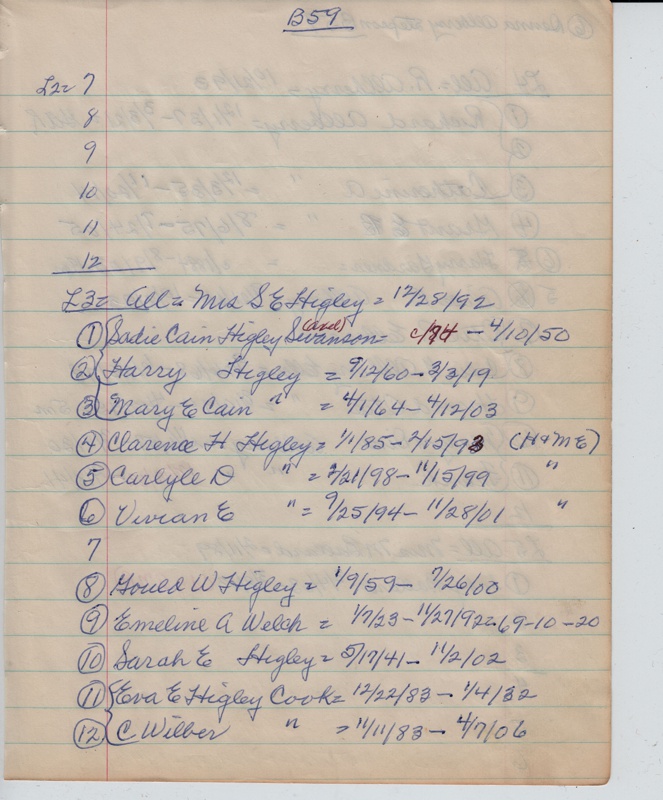 B59
L2= 7
8
9
10
11
12
L3= All= Mrs S E Higley = 12/28/92
① Sadie Cain Higley Swanson= c/74 - 4/10/50
② Harry Higley = 9/12/60 - 3/3/19
③ Mary E Cain " = 4/1/64 - 4/12/03
④ Clarence H Higley = 1/1/85 - 2/15/93 (H&ME)
⑤ Carlyle D " = 2/21/98 - 11/15/99 "
⑥ Vivian E " = 9/25/94 - 11/28/01 "
7
⑧ Gould W Higley = 1/9/59 - 7/26/00
⑨ Emeline A Welch = 1/7/23 - 11/27/92 = 69-10-20
⑩ Sarah E Higley = 5/17/41 - 11/2/02
⑪ Eva E Higley Cook = 12/22/83 - 1/4/32
⑫ C Wilber " = 11/11/83 - 4/7/06